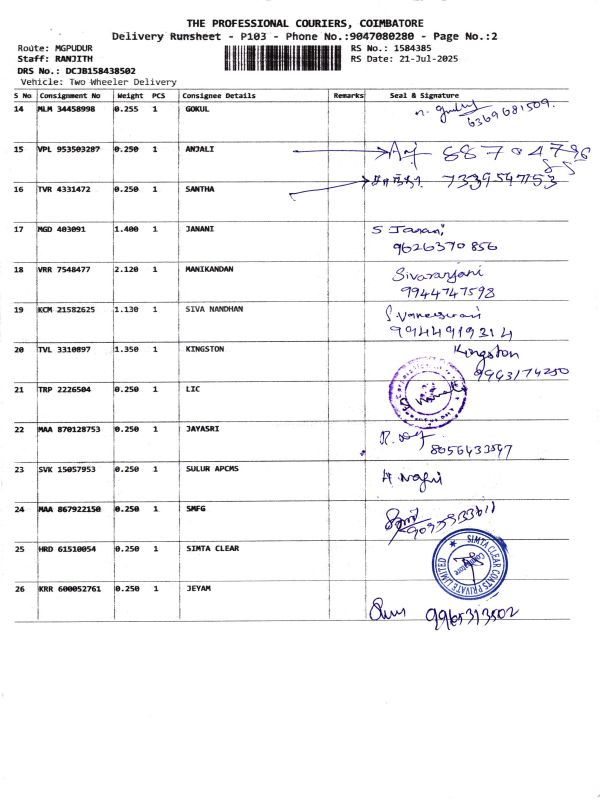 THE PROFESSIONAL COURIERS, COIMBATORE
Delivery Runsheet - P103 - Phone No.:9047080280 - Page No.:2
Route: MGPUDUR RS No.: 1584385
Staff: RANJITH RS Date: 21-Jul-2025
DRS No.: DCJB158438502
Vehicle: Two Wheeler Delivery
S No Consignment No Weight PCS Consignee Details Remarks Seal & Signature
14 MLM 34458998 0.255 1 GOKUL 6369681509.
15 VPL 953503287 0.250 1 ANJALI
16 TVR 4331472 0.250 1 SANTHA 7339547153
17 MGD 403091 1.400 1 JANANI S Janani
9626370856
18 VRR 7548477 2.120 1 MANIKANDAN Sivaranjani
9944747598
19 KCM 21582625 1.130 1 SIVA NANDHAN
9944919314
20 TVL 3310897 1.350 1 KINGSTON Kingston
9963174250
21 TRP 2226504 0.250 1 LIC
22 MAA 870128753 0.250 1 JAYASRI
8056433597
23 SVK 15057953 0.250 1 SULUR APCMS
24 MAA 867922150 0.250 1 SMFG
25 HRD 61510054 0.250 1 SIMTA CLEAR SIMTA CLEAR COATS PRIVATE LIMITED
Coimbatore
26 KRR 600052761 0.250 1 JEYAM
9965313502